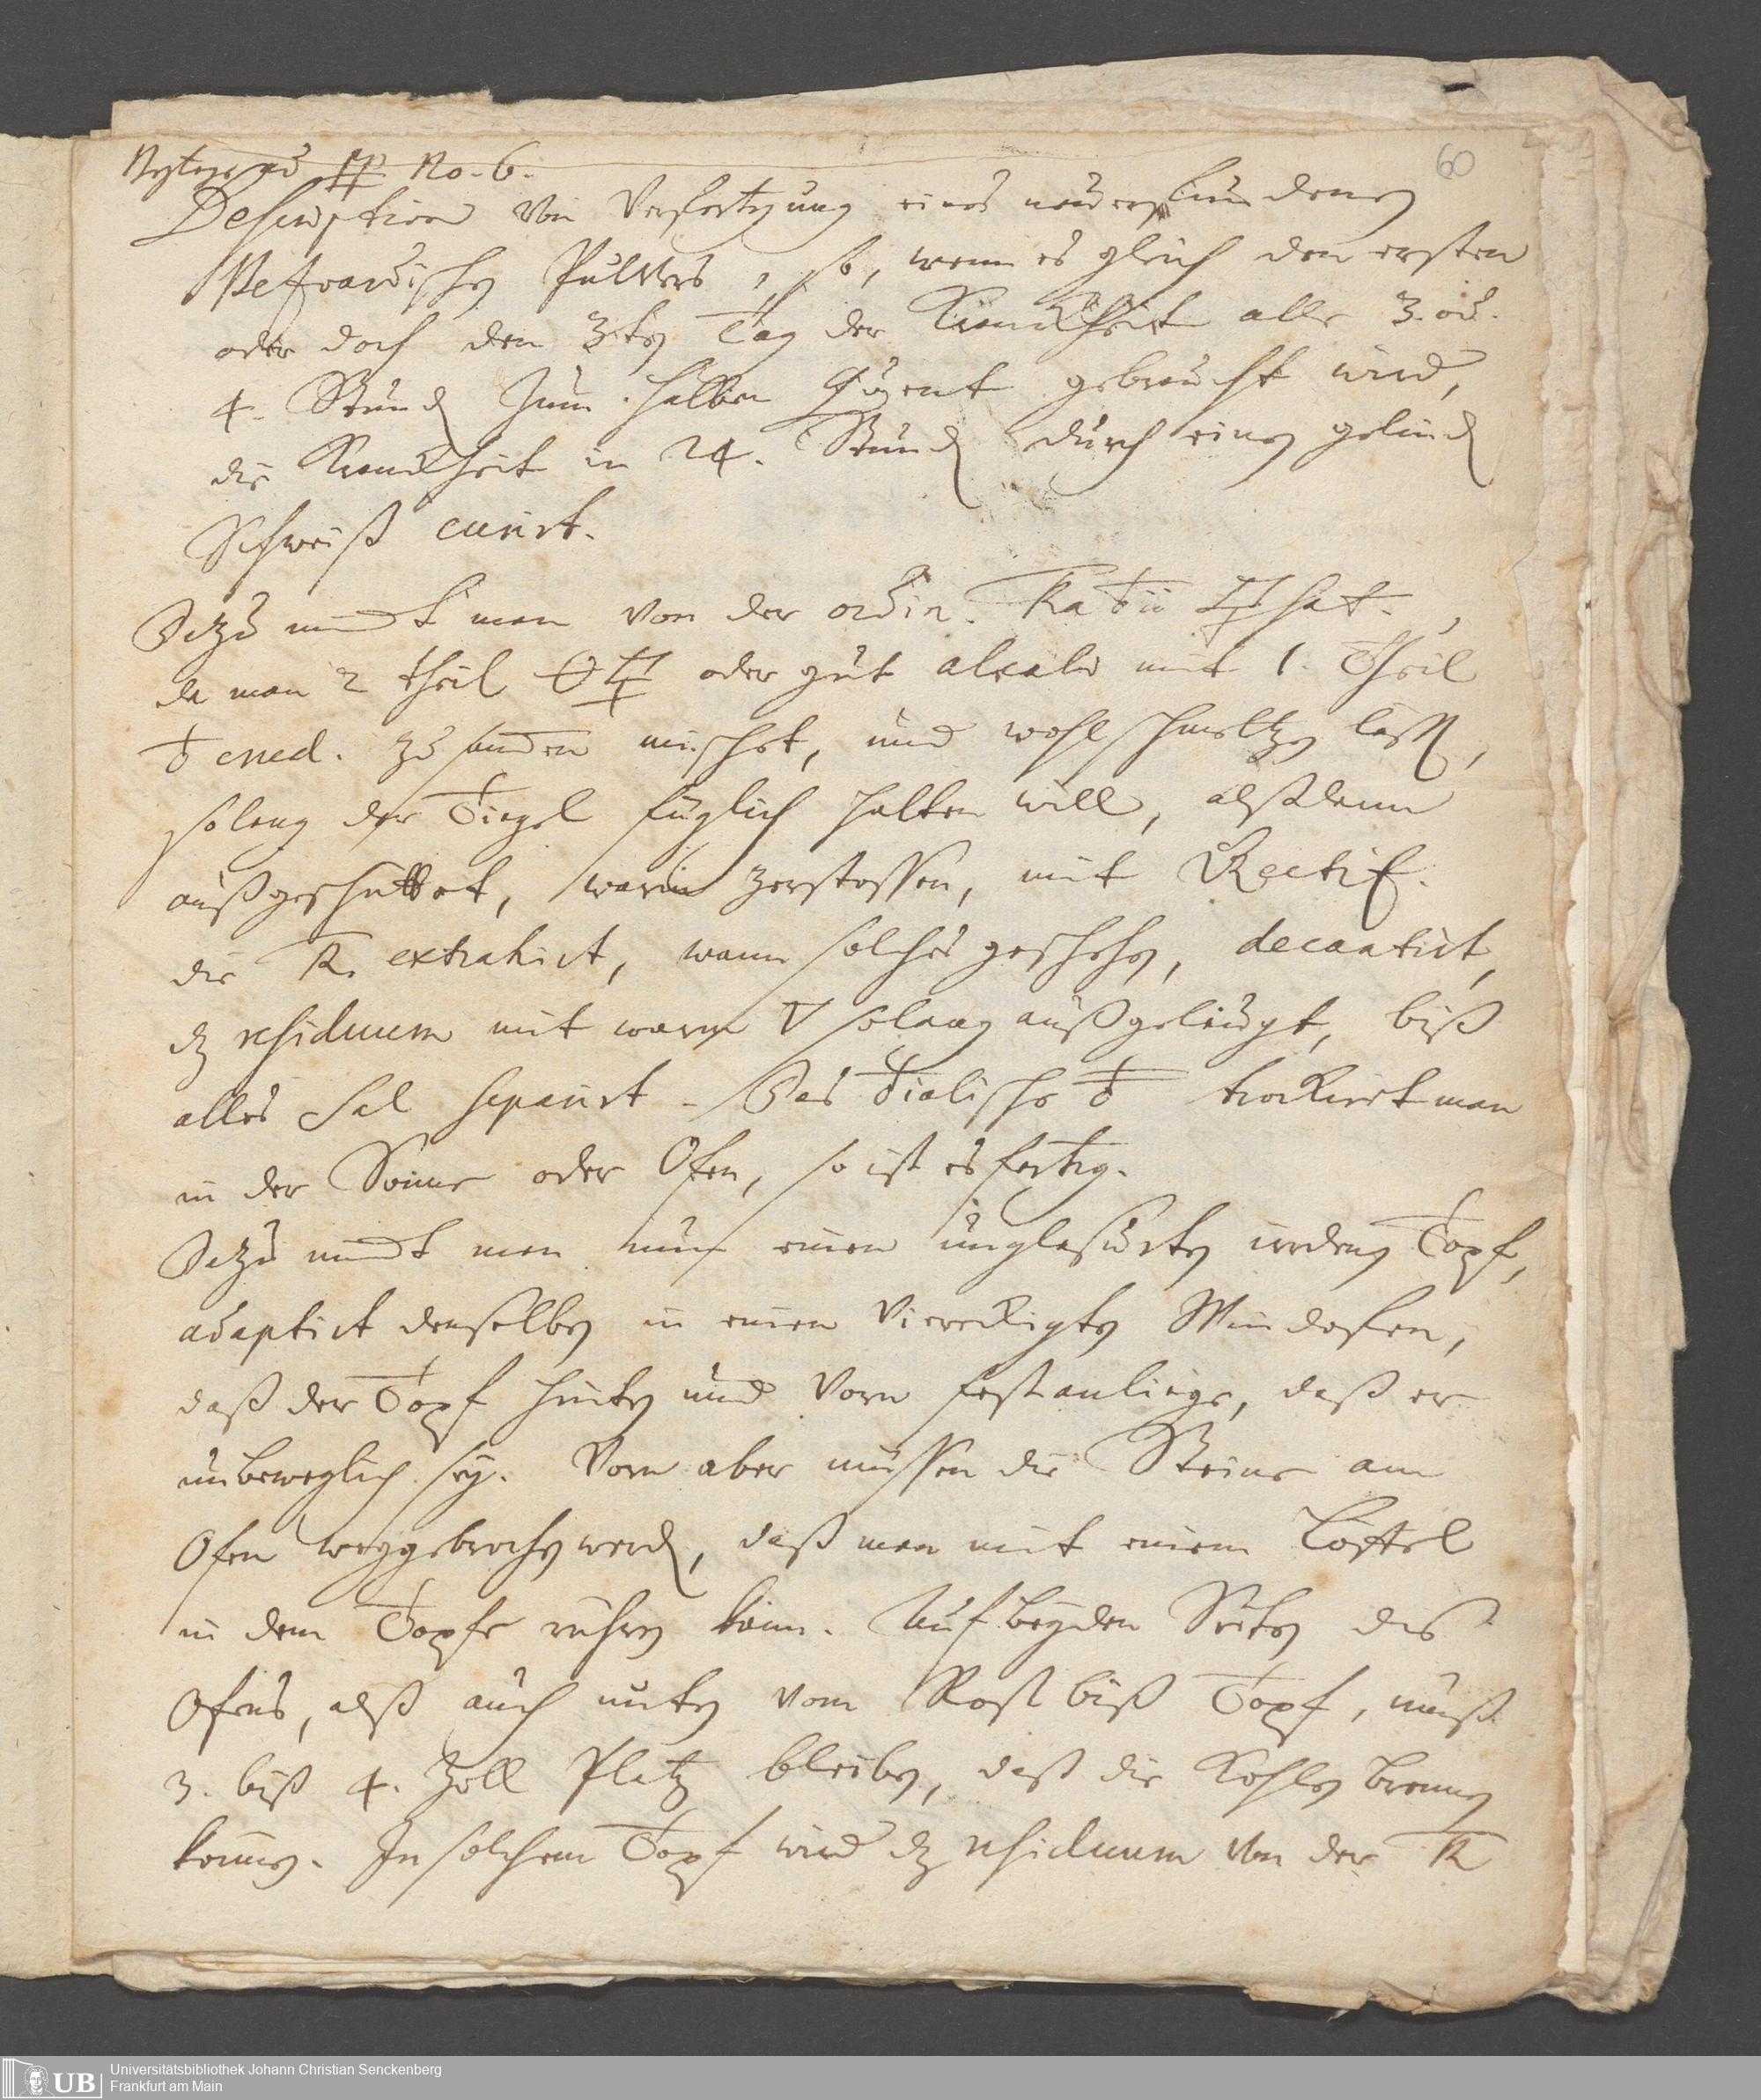 No. 6.
60
Description von Verfertigung eines neuerfundenen
Pulvers, so, wenn es gleich den ersten
oder doch den 3ten Tag der Kranckheit alle 3. od.
4. Stund zum halben Quent gebraucht wird,
die Kranckheit in 24. Stund durch einen gelind
Schweiß curirt.
Dazu nimt man von der ordin.
da man 2 theil oder gut alcali mit 1. Theil
med. zusamen mischet, und wohl schmeltzen lasst,
solang der Tiegel füglich halten will, alßdann
außgeschüttet, warm zerstossen, mit Rectif.
die extrahirt, wann solches geschehen, decantirt,
dz residuum mit warm 🜄 solang außgelaugt, biß
alles Sal separirt. Das trocknet man
in der Sonne oder Ofen, so ist es fertig.
Dazu nimt man nun einen unglasurten irdenen Topf,
adaptirt denselben in einen Viereckigten Windofen,
daß der Topf hinten und Vorn fest anliege, daß er
unbeweglich sey. Vorn aber müssen die Steine am
Ofen weggebrochen werd, daß man mit einem Löffel
in dem Topfe rühren kann. Auf beyden Seiten des
Ofens, alß auch unten vom Rost biß Topf, muß
3. biß 4. Zoll Platz bleiben, daß die Kohlen brennen
können. In solchem Topf wird dz residuum von der
UB Universitätsbibliothek Johann Christian Senckenberg
Frankfurt am Main